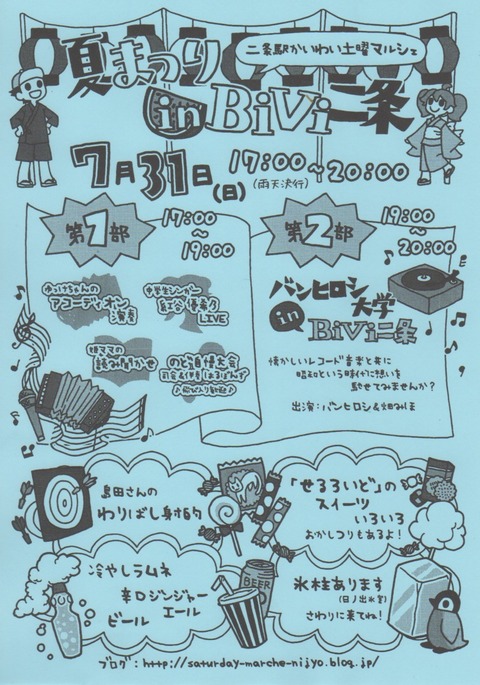 二条駅かいわい土曜マルシェ
夏まつり
in BiVi二条
7月31日(日)
17:00～20:00
(雨天決行)
第1部
17:00
～
19:00
第2部
19:00
～
20:00
ゆっけちゃんの
アコーディオン
演奏
中学生シンガー
紅谷優希
LIVE
姉ママの
読み聞かせ
のど自慢大会
司会&伴奏 はるぽんず
♪飛び入り歓迎♪
バンヒロシ
大学
in
BiVi二条
懐かしいレコード音楽と共に
昭和という時代に想いを
馳せてみませんか?
出演:バンヒロシ&畑みほ
島田さんの
わりばし射的
「せるろいど」の
スイーツ
いろいろ
おかしつりもあるよ!
冷やしラムネ
辛口ジンジャー
エール
ビール
BEER
氷柱あります
(日ノ出氷室)
さわりに来てね!
ブログ:http://saturday-marche-nijyo.blog.jp/